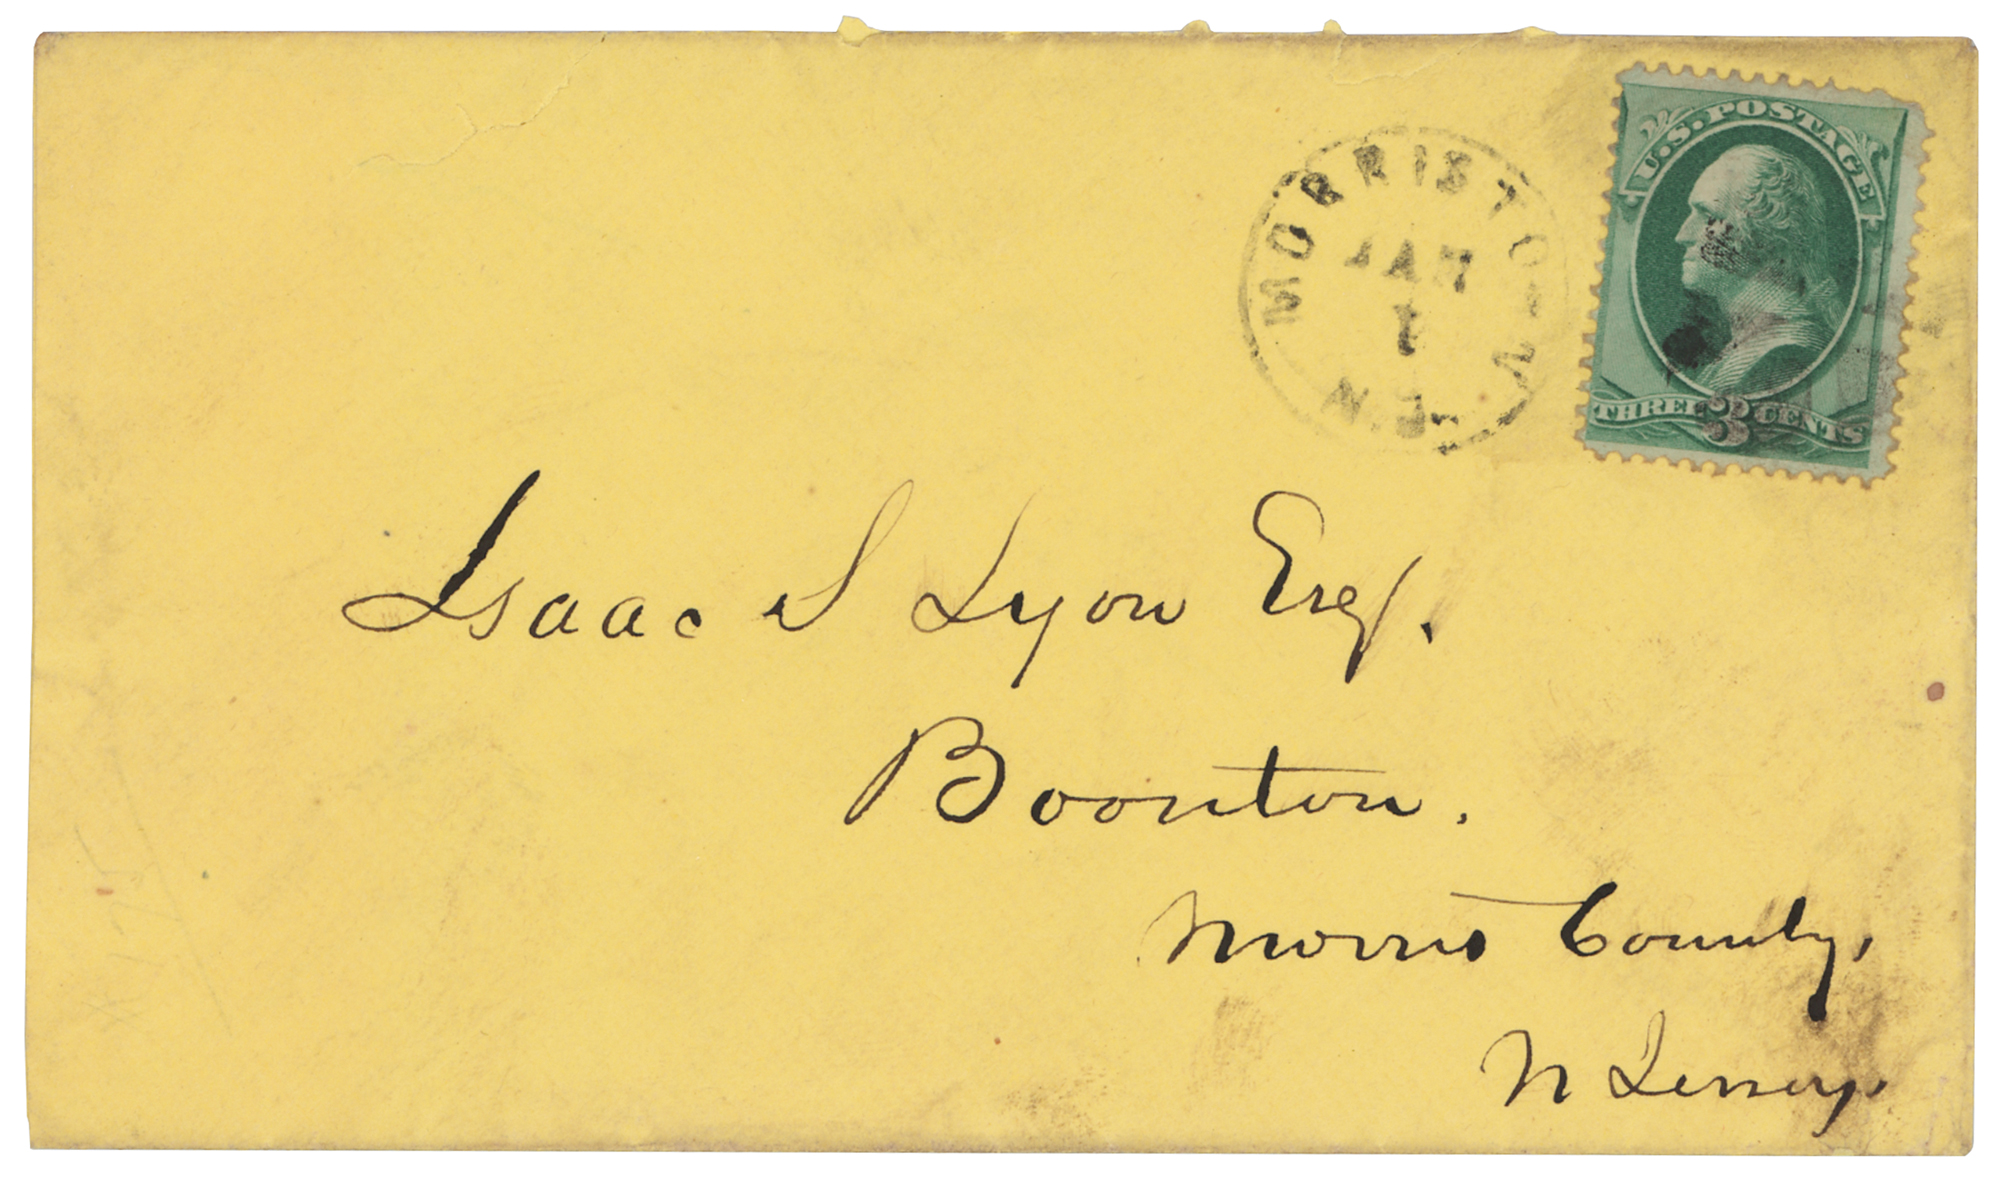 U.S. POSTAGE
THREE 3 CENTS
MORRISTOWN
JAN
1
N.J.
Isaac S Lyon Esq.
Boonton.
Morris County,
N Jersey.